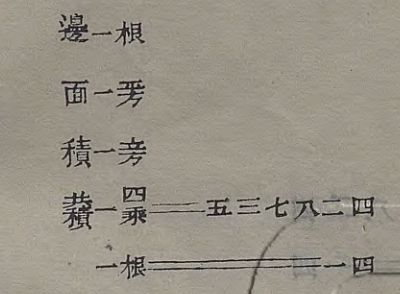 邊一根
面一平方
積一立方
共積一四乘＝五三七八二四
一根＝一四